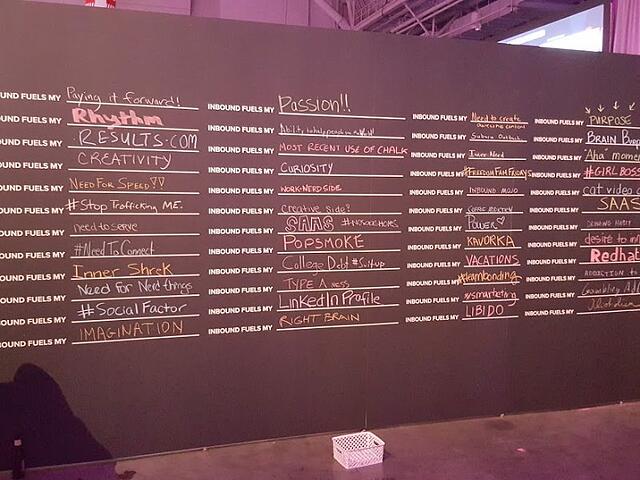 OUND FUELS MY Paying it forward!!
BOUND FUELS MY Rhythm
BOUND FUELS MY RESULTS.COM
BOUND FUELS MY CREATIVITY
BOUND FUELS MY NEED FOR SPEED!!
BOUND FUELS MY #Stop Trafficking ME.
BOUND FUELS MY need to serve
BOUND FUELS MY #NeedToConnect
BOUND FUELS MY Inner Shrek
BOUND FUELS MY Need for Need things
BOUND FUELS MY #Social Factor
BOUND FUELS MY IMAGINATION
INBOUND FUELS MY Passion!!
INBOUND FUELS MY Ability to help people
INBOUND FUELS MY MOST RECENT USE OF CHALK
INBOUND FUELS MY CURIOSITY
INBOUND FUELS MY WORK NERD SIDE
INBOUND FUELS MY creative side?
INBOUND FUELS MY SAAS
INBOUND FUELS MY POPSMOKE
INBOUND FUELS MY College Debt
INBOUND FUELS MY TYPE A ness
INBOUND FUELS MY LinkedIn Profile
INBOUND FUELS MY RIGHT BRAIN
INBOUND FUELS MY Need to create
awesome content
INBOUND FUELS MY Subaru Outback
INBOUND FUELS MY Inner Nerd
INBOUND FUELS MY #FREEDOMFAMFRIDAYS
INBOUND FUELS MY INBOUND MOJO
INBOUND FUELS MY COFFEE ADDICTION
INBOUND FUELS MY POWER
INBOUND FUELS MY KAVORKA
INBOUND FUELS MY VACATIONS
INBOUND FUELS MY #teambonding
INBOUND FUELS MY #smarketing
INBOUND FUELS MY LIBIDO
INBOUND FUELS MY PURPOSE
INBOUND FUELS MY BRAIN
INBOUND FUELS MY Aha mome
INBOUND FUELS MY #GIRLBOSS
INBOUND FUELS MY cat video
INBOUND FUELS MY SAAS
INBOUND FUELS MY DRINKING HABIT
INBOUND FUELS MY desire to
INBOUND FUELS MY Redhat
INBOUND FUELS MY ADDICTION
INBOUND FUELS MY Gambling Add
INBOUND FUELS MY